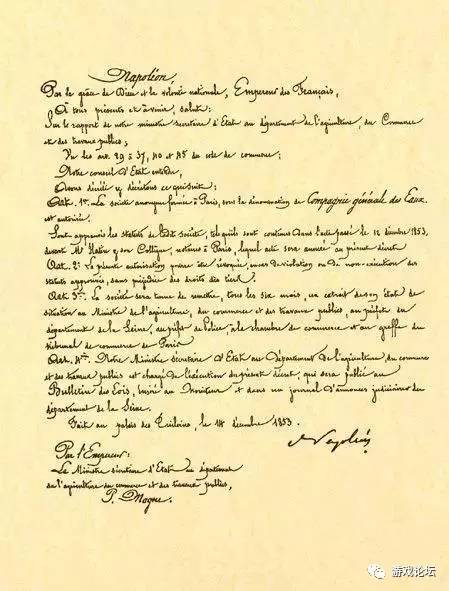 Napoléon,
Par la grâce de Dieu et la volonté nationale, Empereur des Français,
A tous présents et à venir, salut:
Sur le rapport de notre ministre secrétaire d'Etat au département de l'agriculture, du Commerce
et des travaux publics;
Vu les art. 29 à 37, 40 et 45 du code de commerce;
Notre conseil d'Etat entendu,
Avons décrété et décrétons ce qui suit:
Art. 1er. La société anonyme formée à Paris, sous la dénomination de Compagnie générale des Eaux
est autorisée.
Sont approuvés les statuts de dite société, tels qu'ils sont contenus dans l'acte passé le 12 décembre 1853,
devant Me et son Collègue, notaires à Paris, lequel acte sera annexé au présent décret
Art. 2e. La présente autorisation pourra être révoquée en cas de violation ou de non-exécution des
statuts approuvés, sans préjudice des droits des tiers.
Art. 3e. La société sera tenue de remettre, tous les six mois, un extrait de son état de
situation au Ministre de l'agriculture, du commerce et des travaux publics, au préfet du
département de la Seine, au préfet de Police, à la chambre de commerce et au greffe du
tribunal de commerce de Paris
Art. 4e. Notre Ministre Secrétaire d'Etat au département de l'agriculture, du commerce
et des travaux publics est chargé de l'exécution du présent décret, qui sera publié au
Bulletin des Lois, inséré au Moniteur et dans un journal d'annonces judiciaires du
département de la Seine.
Fait au palais des Tuileries, le 14 décembre 1853.
Napoléon
Par l'Empereur:
Le Ministre secrétaire d'Etat au département
de l'agriculture du commerce et des travaux publics,
P. Magne.
游戏论坛